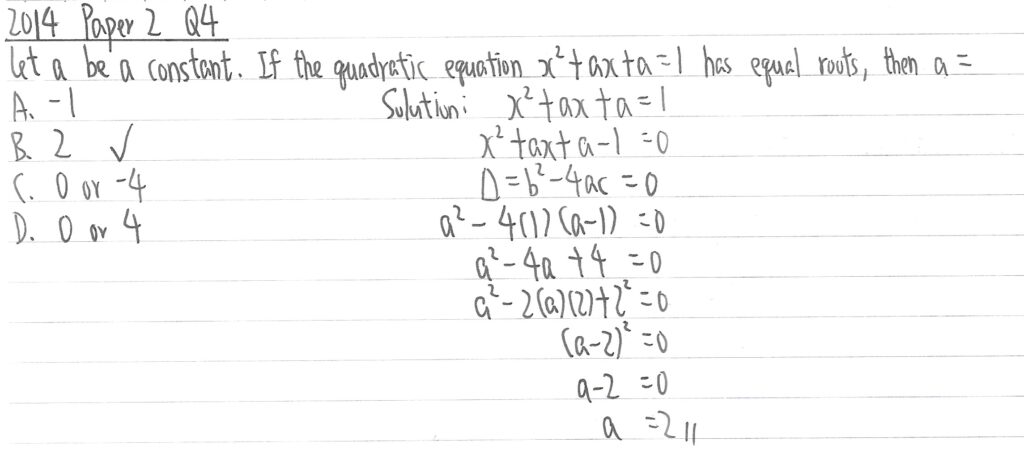 2014 Paper 2 Q4
let a be a constant. If the quadratic equation x²+ax+a=1 has equal roots, then a =
A. -1
B. 2 ✓
C. 0 or -4
D. 0 or 4
Solution: x²+ax+a=1
x²+ax+a-1=0
D=b²-4ac=0
a²-4(1)(a-1)=0
a²-4a+4=0
a²-2(a)(2)+2²=0
(a-2)²=0
a-2=0
a=2 //